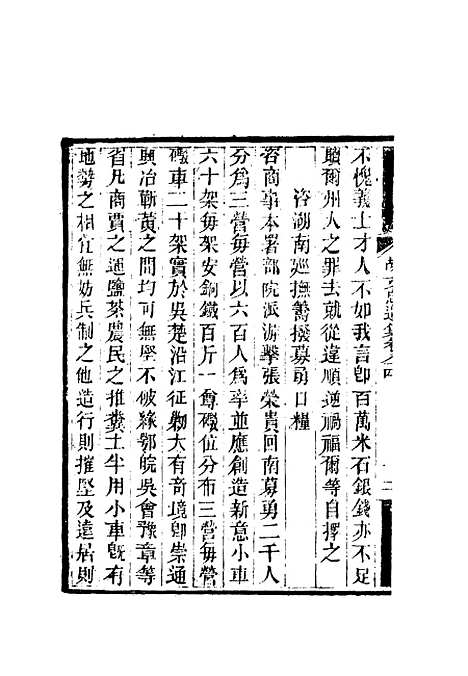 不愧義士才人不如我言卽百萬米石銀錢亦不足
贖爾州人之罪去就從違順逆禍福爾等自擇之
咨湖南巡撫籌撥募勇口糧
咨商事本署部院派游擊張榮貴回南募勇二千人
分爲三營每營以六百人爲率並應創造新意小車
六十架每架安銅鐵百斤一尊礮位分布三營每營
礮車二十架實於吳楚沿江征勦大有奇境卽崇通
興冶蘄黃之間均可無堅不破緣鄂皖吳會豫章等
省凡商賈之通鹽茶農民之推糞土牛用小車旣有
地勢之相宜無妨兵制之他造行則摧堅及遠居則